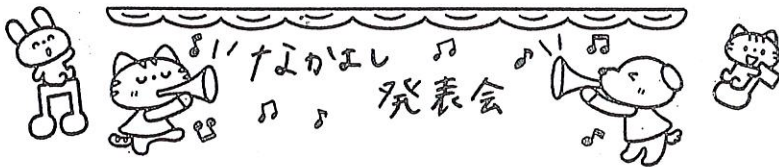 なかよし
発表会